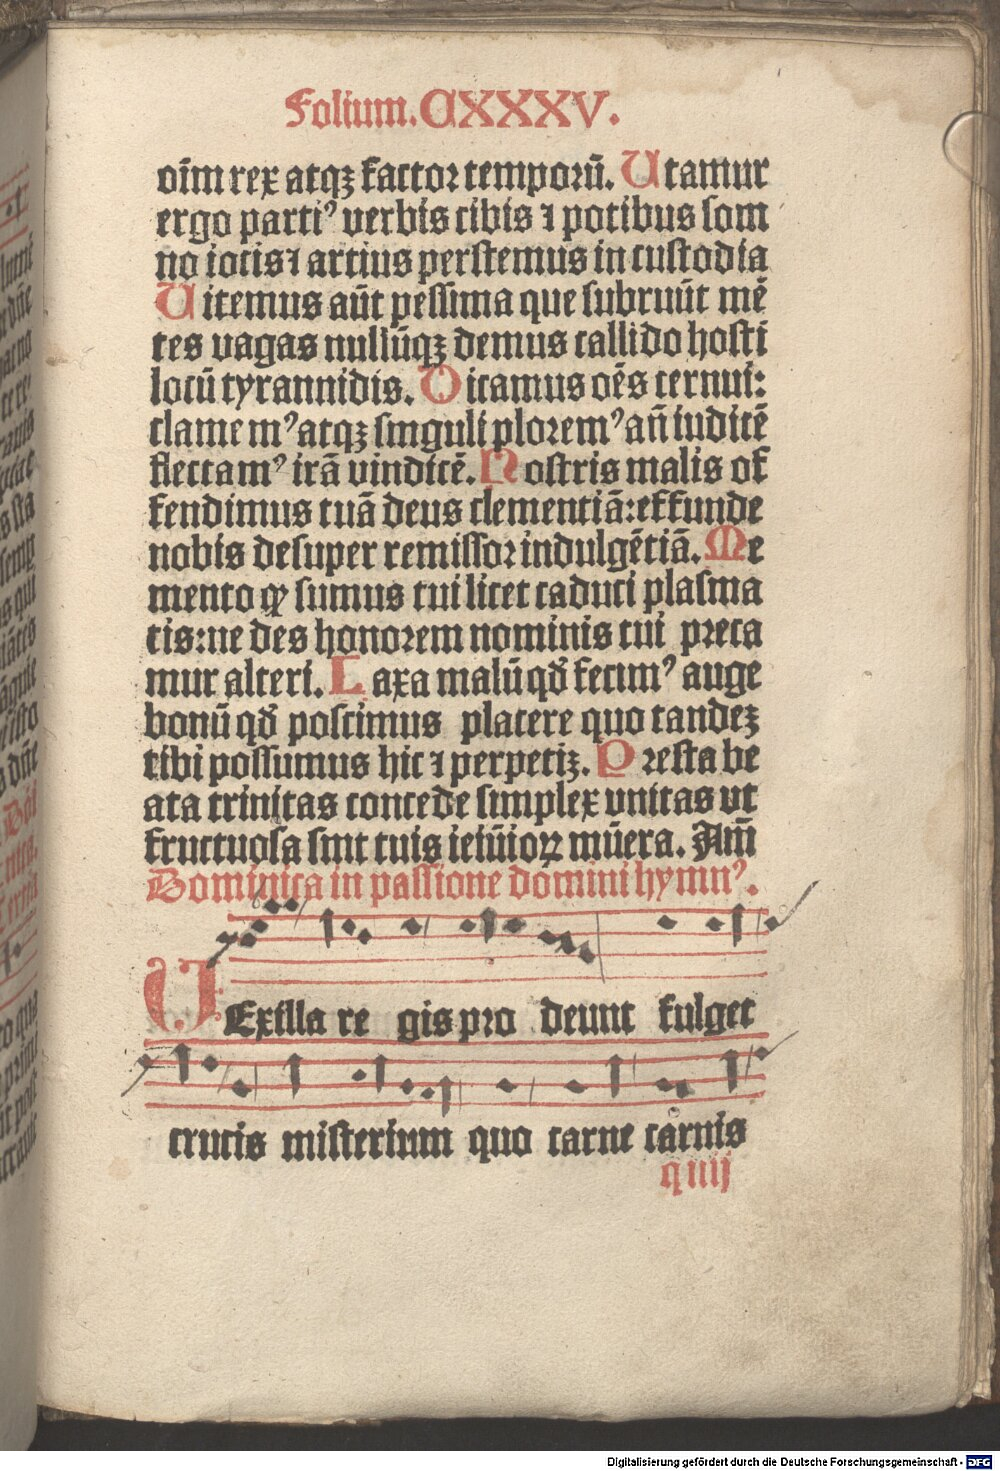 Folium.CXXXV.
oīm rex atqꝫ factoꝛ tempoꝛū. Utamur
ergo partiꝰ verbis cibis ⁊ potibus ſom
no iocis ⁊ artius perſtemus in cuſtodia
Uitemus aūt peſſima que ſubruūt mē
tes vagas nullūqꝫ demus callido hoſti
locū tyrannidis. Dicamus oēs cernui:
clamemꝰ atqꝫ ſinguli ploꝛemꝰ añ iudicē
flectamꝰ irā vindicē. Noſtris malis of
fendimus tuā deus clementiā: effunde
nobis deſuper remiſſoꝛ indulgētiā. Me
mento ꝙ ſumus tui licet caduci plaſma
tis: ne des honoꝛem nominis tui preca
mur alteri. Laxa malū qd̄ fecimꝰ auge
bonū qd̄ poſcimus placere quo tandeꝫ
tibi poſſumus hic ⁊ perpetiꝫ. Pꝛeſta be
ata trinitas concede ſimplex vnitas vt
fructuoſa ſint tuis ieiūioꝝ mūera. Am̄
Dominica in paſſione domini hymnꝰ.
VExilla re gis pꝛo deunt fulget
crucis miſterium quo carne carnis
q iiij
Digitalisierung gefördert durch die Deutsche Forschungsgemeinschaft - DFG